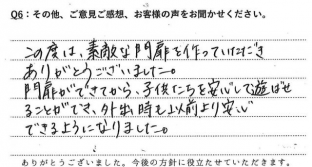 Q6：その他、ご意見ご感想、お客様の声をお聞かせください。
この度は、素敵な門扉を作っていただき
ありがとうございました。
門扉ができてから、子供たちを安心して遊ばせ
ることができ、外出時も以前より安心
できるようになりました。
ありがとうございました。今後の方針に役立たせていただきます。